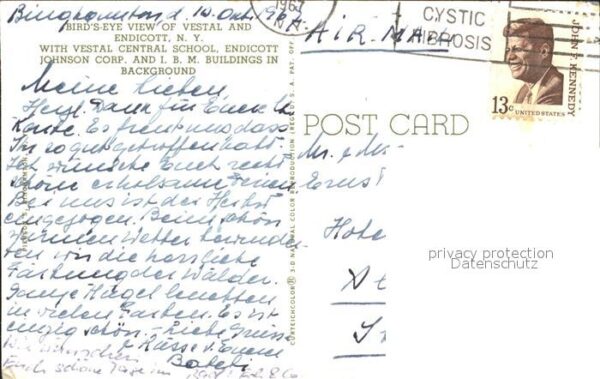 Binghamton d. 10. Okt. 196
BIRD'S-EYE VIEW OF VESTAL AND
ENDICOTT, N. Y.
WITH VESTAL CENTRAL SCHOOL, ENDICOTT
JOHNSON CORP. AND I. B. M. BUILDINGS IN
BACKGROUND
Meine Lieben,
Herzl. Dank für Eure
Karte. Es freut uns dass
Ihr so gut getroffen habt.
Ich wünsche Euch recht
schöne erholsame
Bei uns ist der Herbst
eingezogen. Beim schön
warmen Wetter bewundern
wir die herrliche
Färbung der Wälder.
Ganze Hügel leuchten
in vielen Farben. Es ist
einzig schön. – Liebe Grüsse
& Küsse v. Eurem
Wir wünschen
Euch schöne Tage in
CURTEICHCOLOR® 3-D NATURAL COLOR REPRODUCTION (REG'D U.S.A. PAT. OFF.
CYSTIC
FIBROSIS
AIR MAIL
JOHN F. KENNEDY
13c
UNITED STATES
POST CARD
Mr. & Mr
Ernst
Hote
privacy protection
Datenschutz